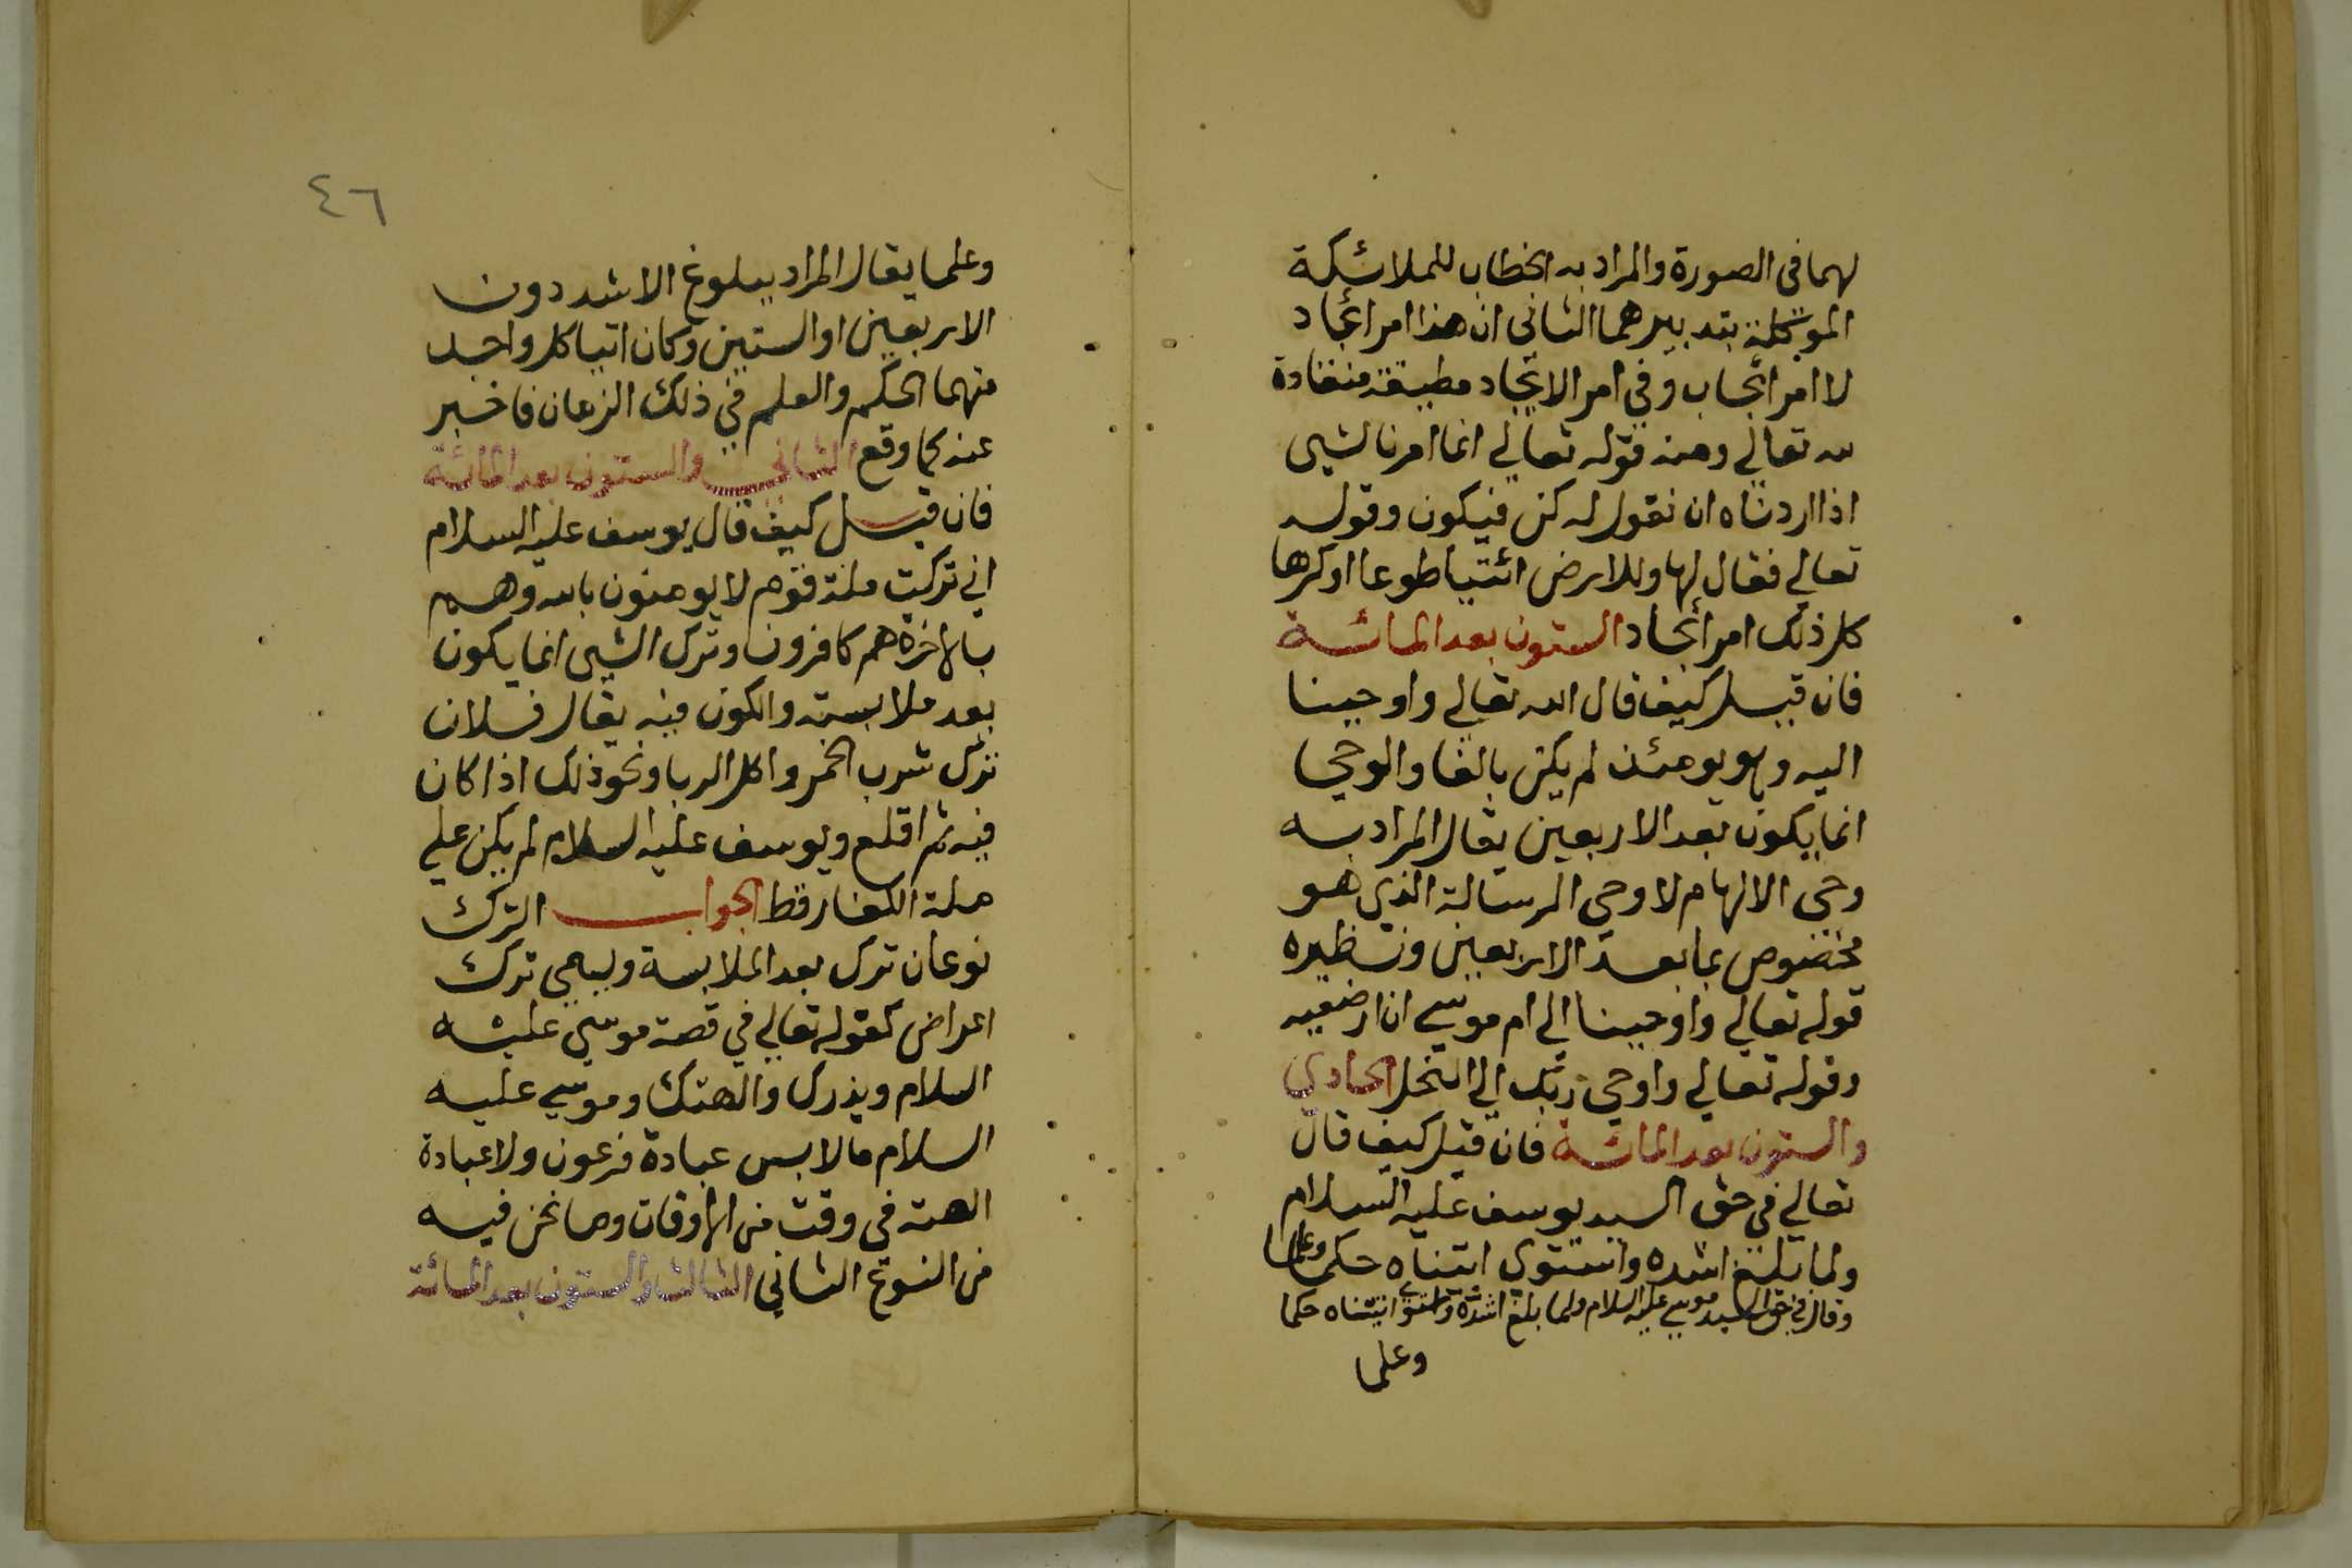 لهما في الصورة والمراد به الخطاب للملائكة
الموكلة بتدبيرهما الثاني ان هذا امر ايجاد
لا امر ايجاب وفي امر الايجاد مطيقة منقادة
لله تعالي ومنه قوله تعالي انما امرنا لشيى
اذا اردناه ان نقول له كن فيكون وقوله
تعالي فقال لها وللارض ائتيا طوعا او كرها
كل ذلك امر ايجاد الستون بعد المائة
فان قيل كيف قال الله تعالي واوحينا
اليه وهو يومئذ لم يكن بالغا والوحي
انما يكون بعد الاربعين يقال المراد به
وحي الالهام لا وحي الرسالة الذي هو
مخصوص بما بعد الاربعين ونظيره
قوله تعالي واوحينا الي ام موسي ان ارضعيه
وقوله تعالي واوحي ربك الي النحل الحادي
والستون بعد المائة فان قيل كيف قال
تعالي في حق السيد يوسف عليه السلام
ولما بلغ اشده واستوي اتيناه حكما وعلما
وقال في حق السيد موسي عليه السلام ولما بلغ اشده واستوي اتيناه حكما
وعلما
٤٦
وعلما يقال المراد ببلوغ الاشد دون
الاربعين او الستين وكان اتيا كل واحد
منهما الحكم والعلم في ذلك الزمان فاخبر
عنه كما وقع الثاني والستون بعد المائة
فان قيل كيف قال يوسف عليه السلام
اني تركت ملة قوم لا يومنون بالله وهم
بالاخرة هم كافرون وترك الشيى انما يكون
بعد ملابسته والكون فيه يقال فلان
ترك شرب الخمر واكل الربا ونحو ذلك اذا كان
فيه ثم اقلع ويوسف عليه السلام لم يكن علي
ملة الكفار قط الجواب الترك
نوعان ترك بعد الملابسة ويسمي ترك
اعراض كقوله تعالي في قصة موسي عليه
السلام ويذرك والهتك وموسي عليه
السلام ما لابس عبادة فرعون ولا عبادة
الهته في وقت من الاوقات وما نحن فيه
من النوع الثاني الثالث والستون بعد المائة